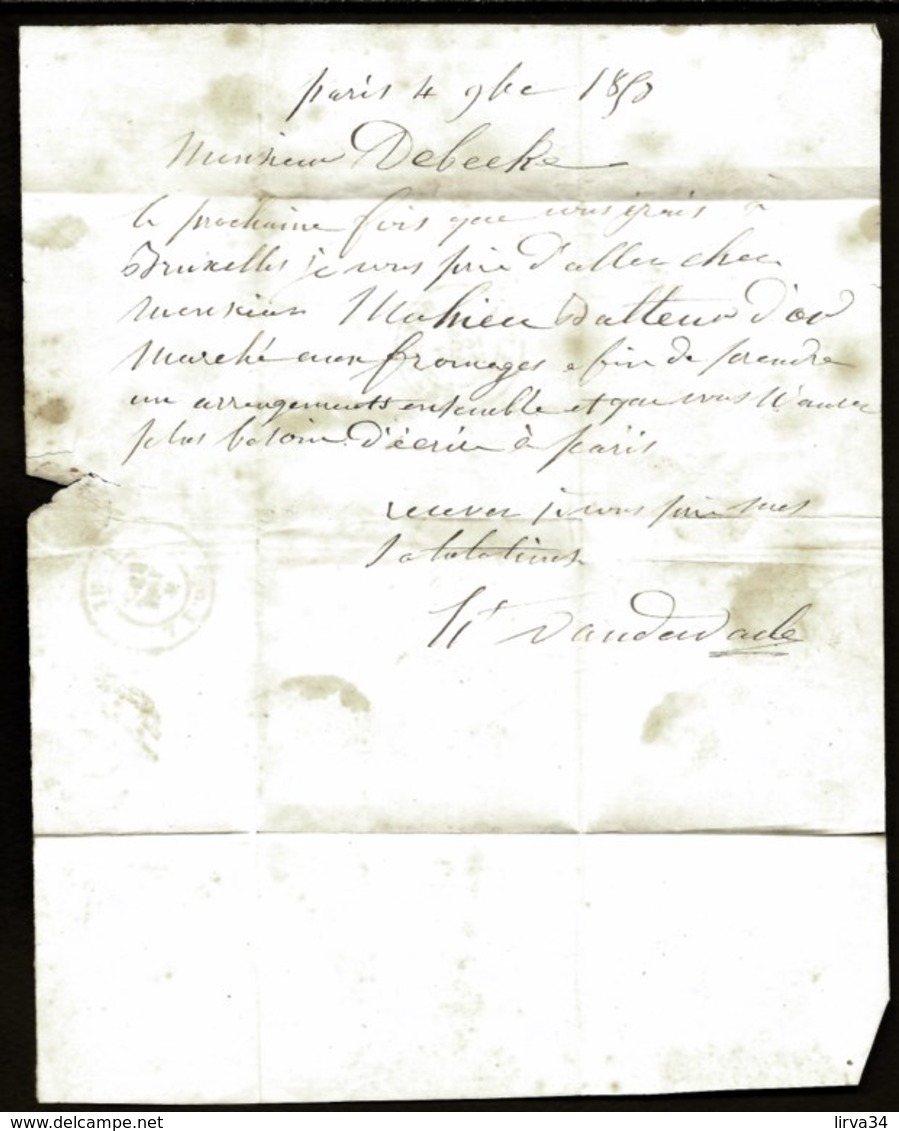 paris 4 9bre 1853
Monsieur Debecke
la prochaine fois que vous irais a
Bruxelles je vous prie d'aller chez
monsieur Mahieu Batteur d'or
Marché aux fromages afin de prendre
un arrengements ensemble et que vous n'aurez
plus besoin d'écrire à paris
recevez je vous prie mes
salutations
Vandervade
delcampe.net
lirva34